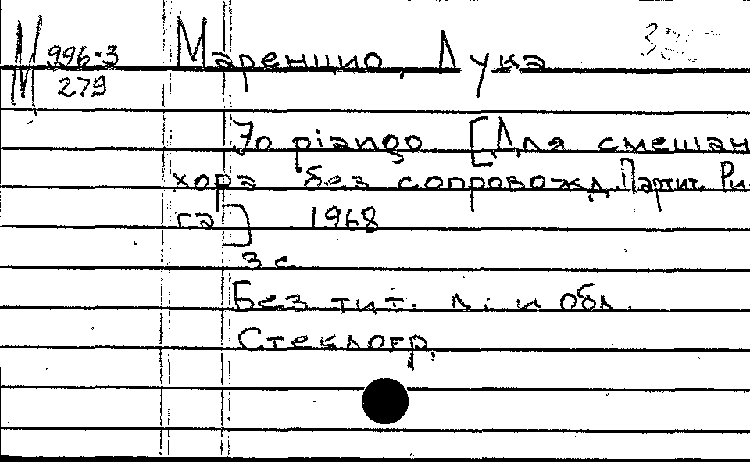 М 996-3
279
Маренцио, Лука
Jo piango. [Для смешан
хора без сопровожд. Партит. Ри
га] 1968
3 с.
Без тит. л. и обл.
Стеклогр.